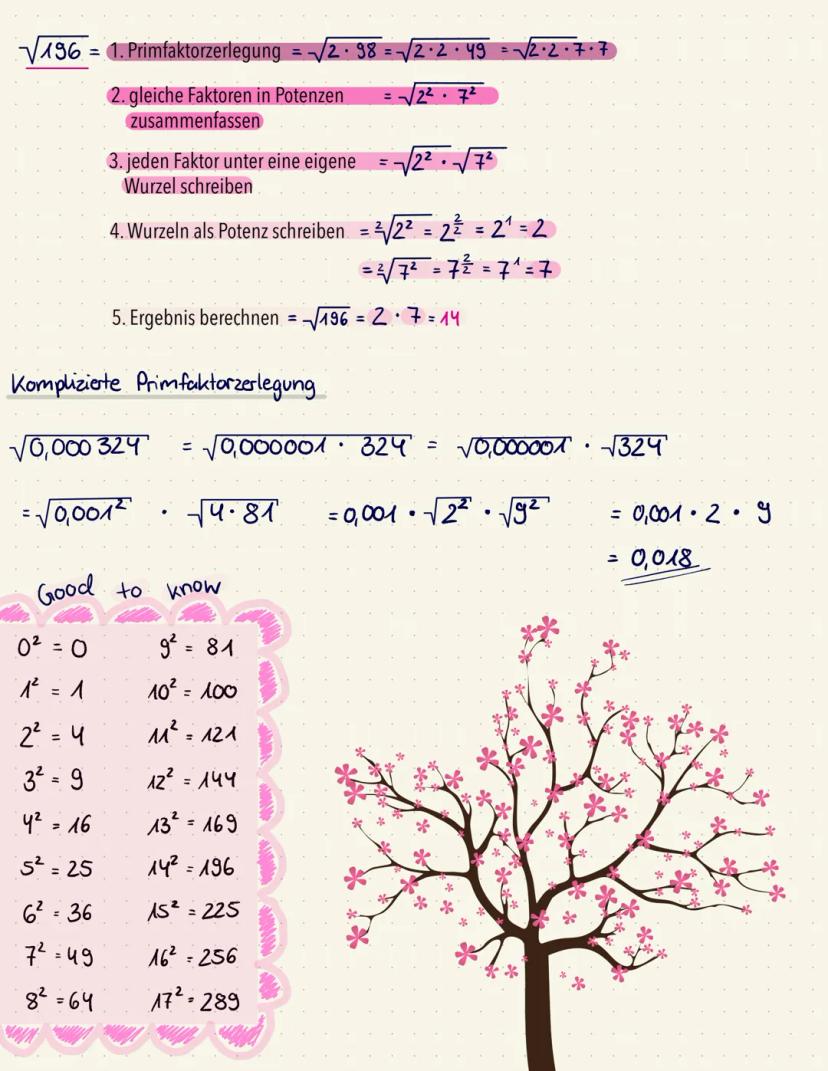 √196 = 1. Primfaktorzerlegung = √2 · 98 = √2 · 2 · 49 = √2 · 2 · 7 · 7
2. gleiche Faktoren in Potenzen = √2² · 7²
zusammenfassen
3. jeden Faktor unter eine eigene = √2² · √7²
Wurzel schreiben
4. Wurzeln als Potenz schreiben = ²√2² = 2^(2/2) = 2¹ = 2
= ²√7² = 7^(2/2) = 7¹ = 7
5. Ergebnis berechnen = √196 = 2 · 7 = 14
Komplizierte Primfaktorzerlegung
√0,000324 = √0,000001 · 324 = √0,000001 · √324
= √0,001² · √4 · 81 = 0,001 · √2² · √9² = 0,001 · 2 · 9
= 0,018
Good to know
0² = 0 9² = 81
1² = 1 10² = 100
2² = 4 11² = 121
3² = 9 12² = 144
4² = 16 13² = 169
5² = 25 14² = 196
6² = 36 15² = 225
7² = 49 16² = 256
8² = 64 17² = 289